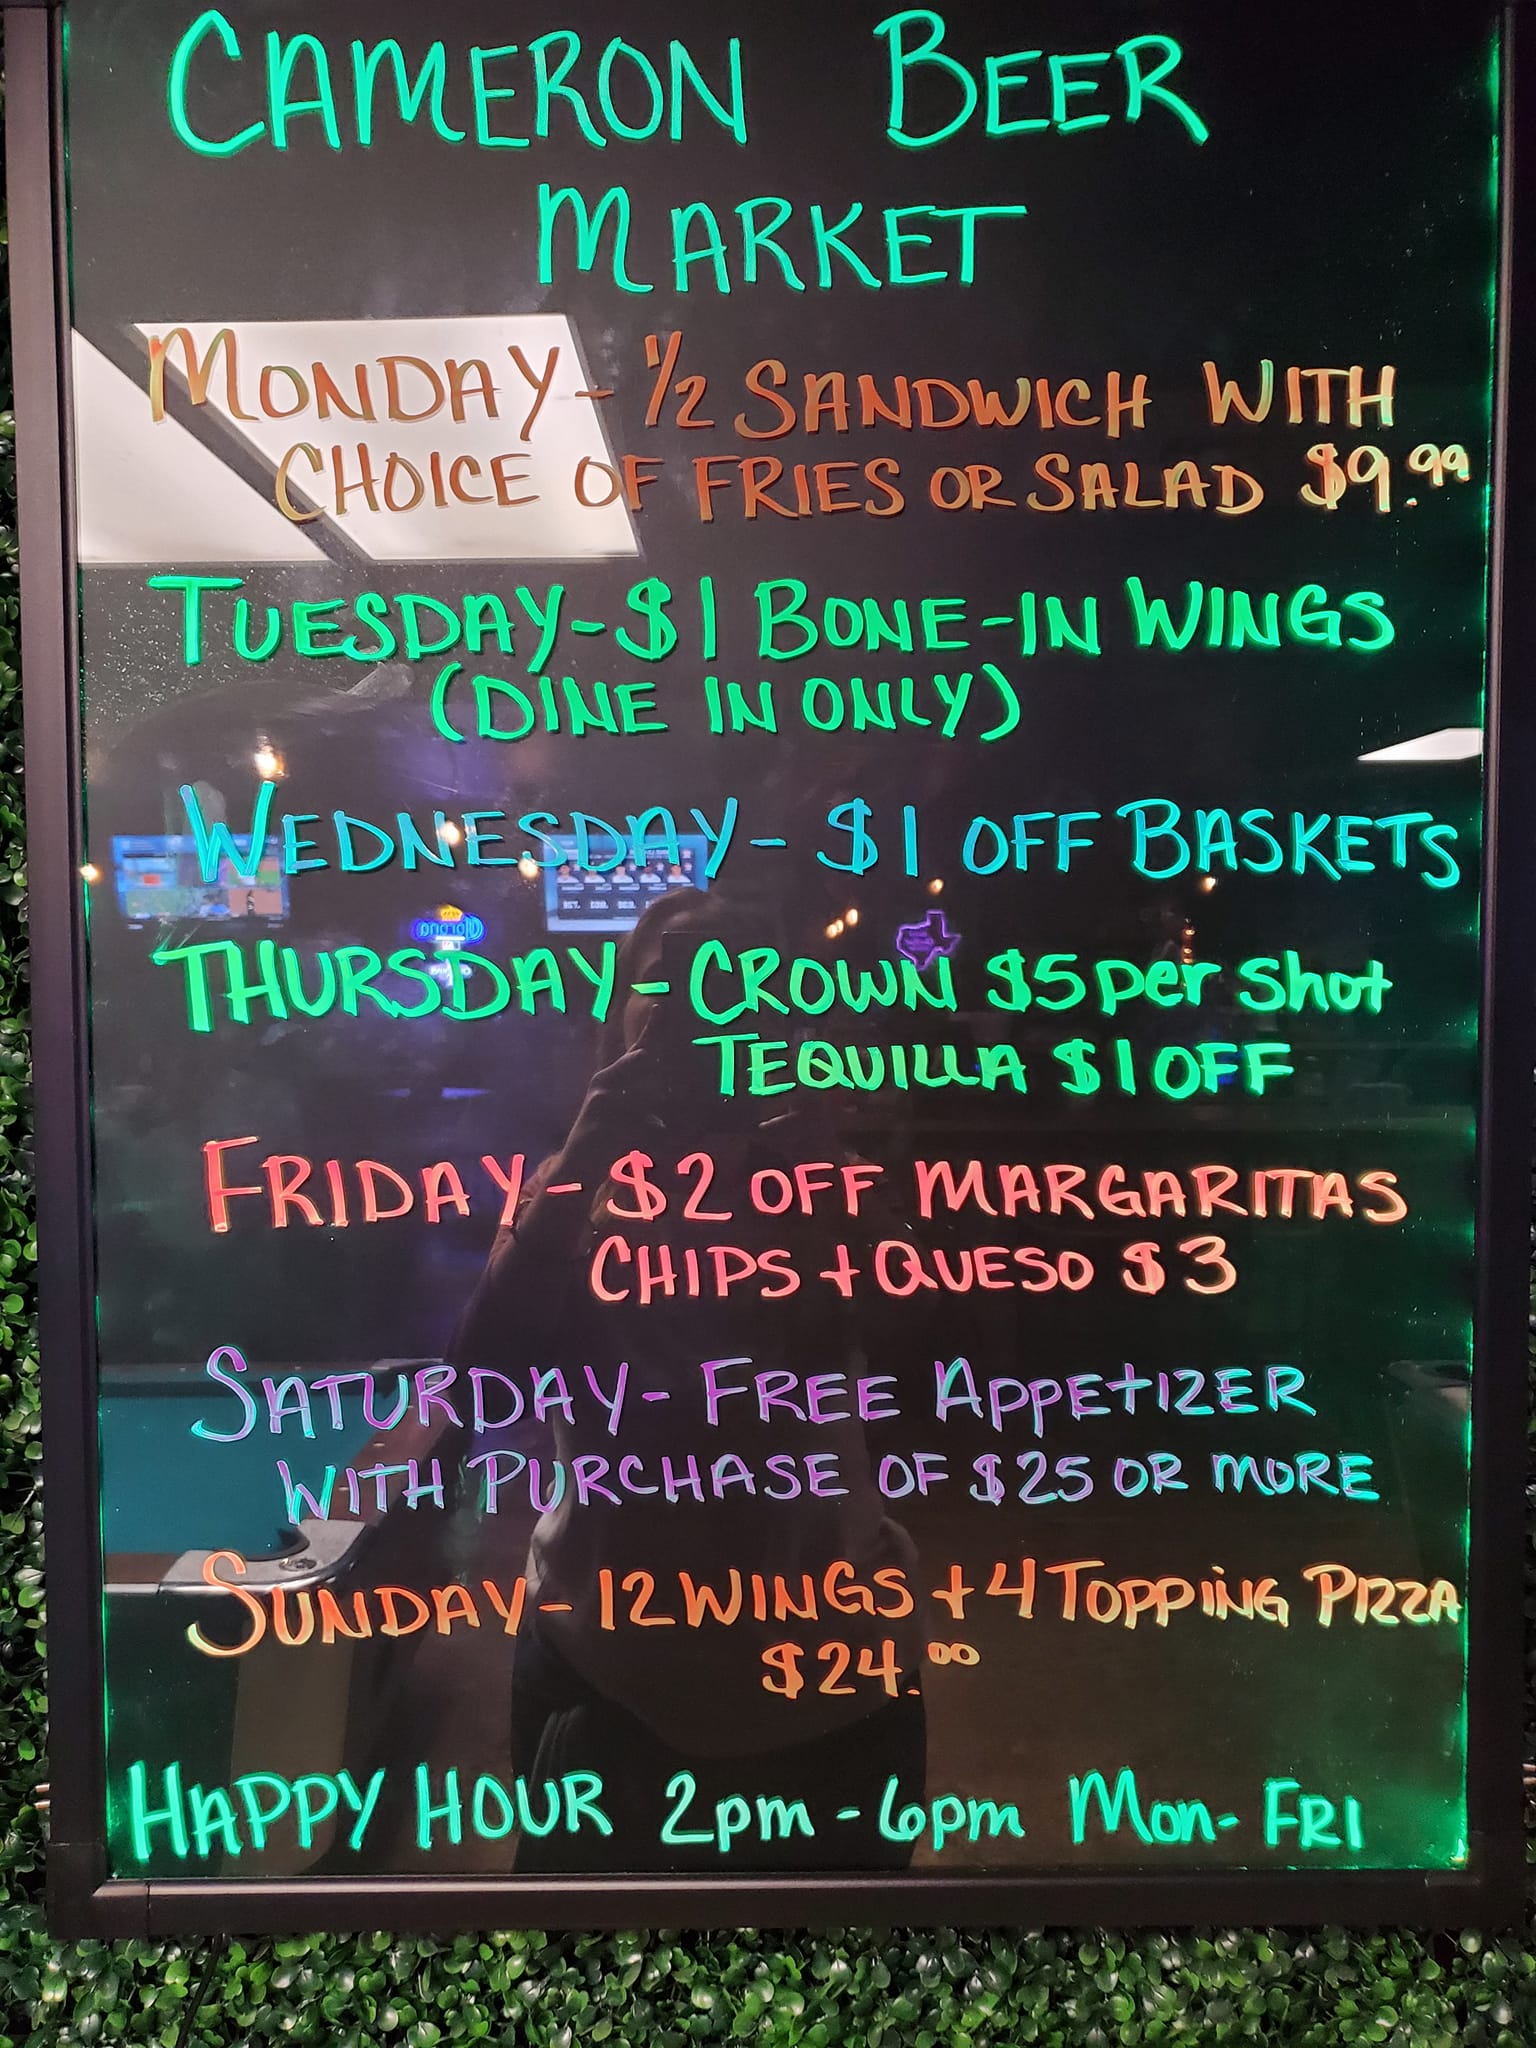 CAMERON BEER
MARKET
MONDAY - 1/2 SANDWICH WITH
CHOICE OF FRIES OR SALAD $9.99
TUESDAY - $1 BONE-IN WINGS
(DINE IN ONLY)
WEDNESDAY - $1 OFF BASKETS
THURSDAY - CROWN $5 per shot
TEQUILLA $1 OFF
FRIDAY - $2 OFF MARGARITAS
CHIPS + QUESO $3
SATURDAY - FREE APPETIZER
WITH PURCHASE OF $25 OR MORE
SUNDAY - 12 WINGS + 4 TOPPING PIZZA
$24.00
HAPPY HOUR 2pm - 6pm Mon - FRI
Corona